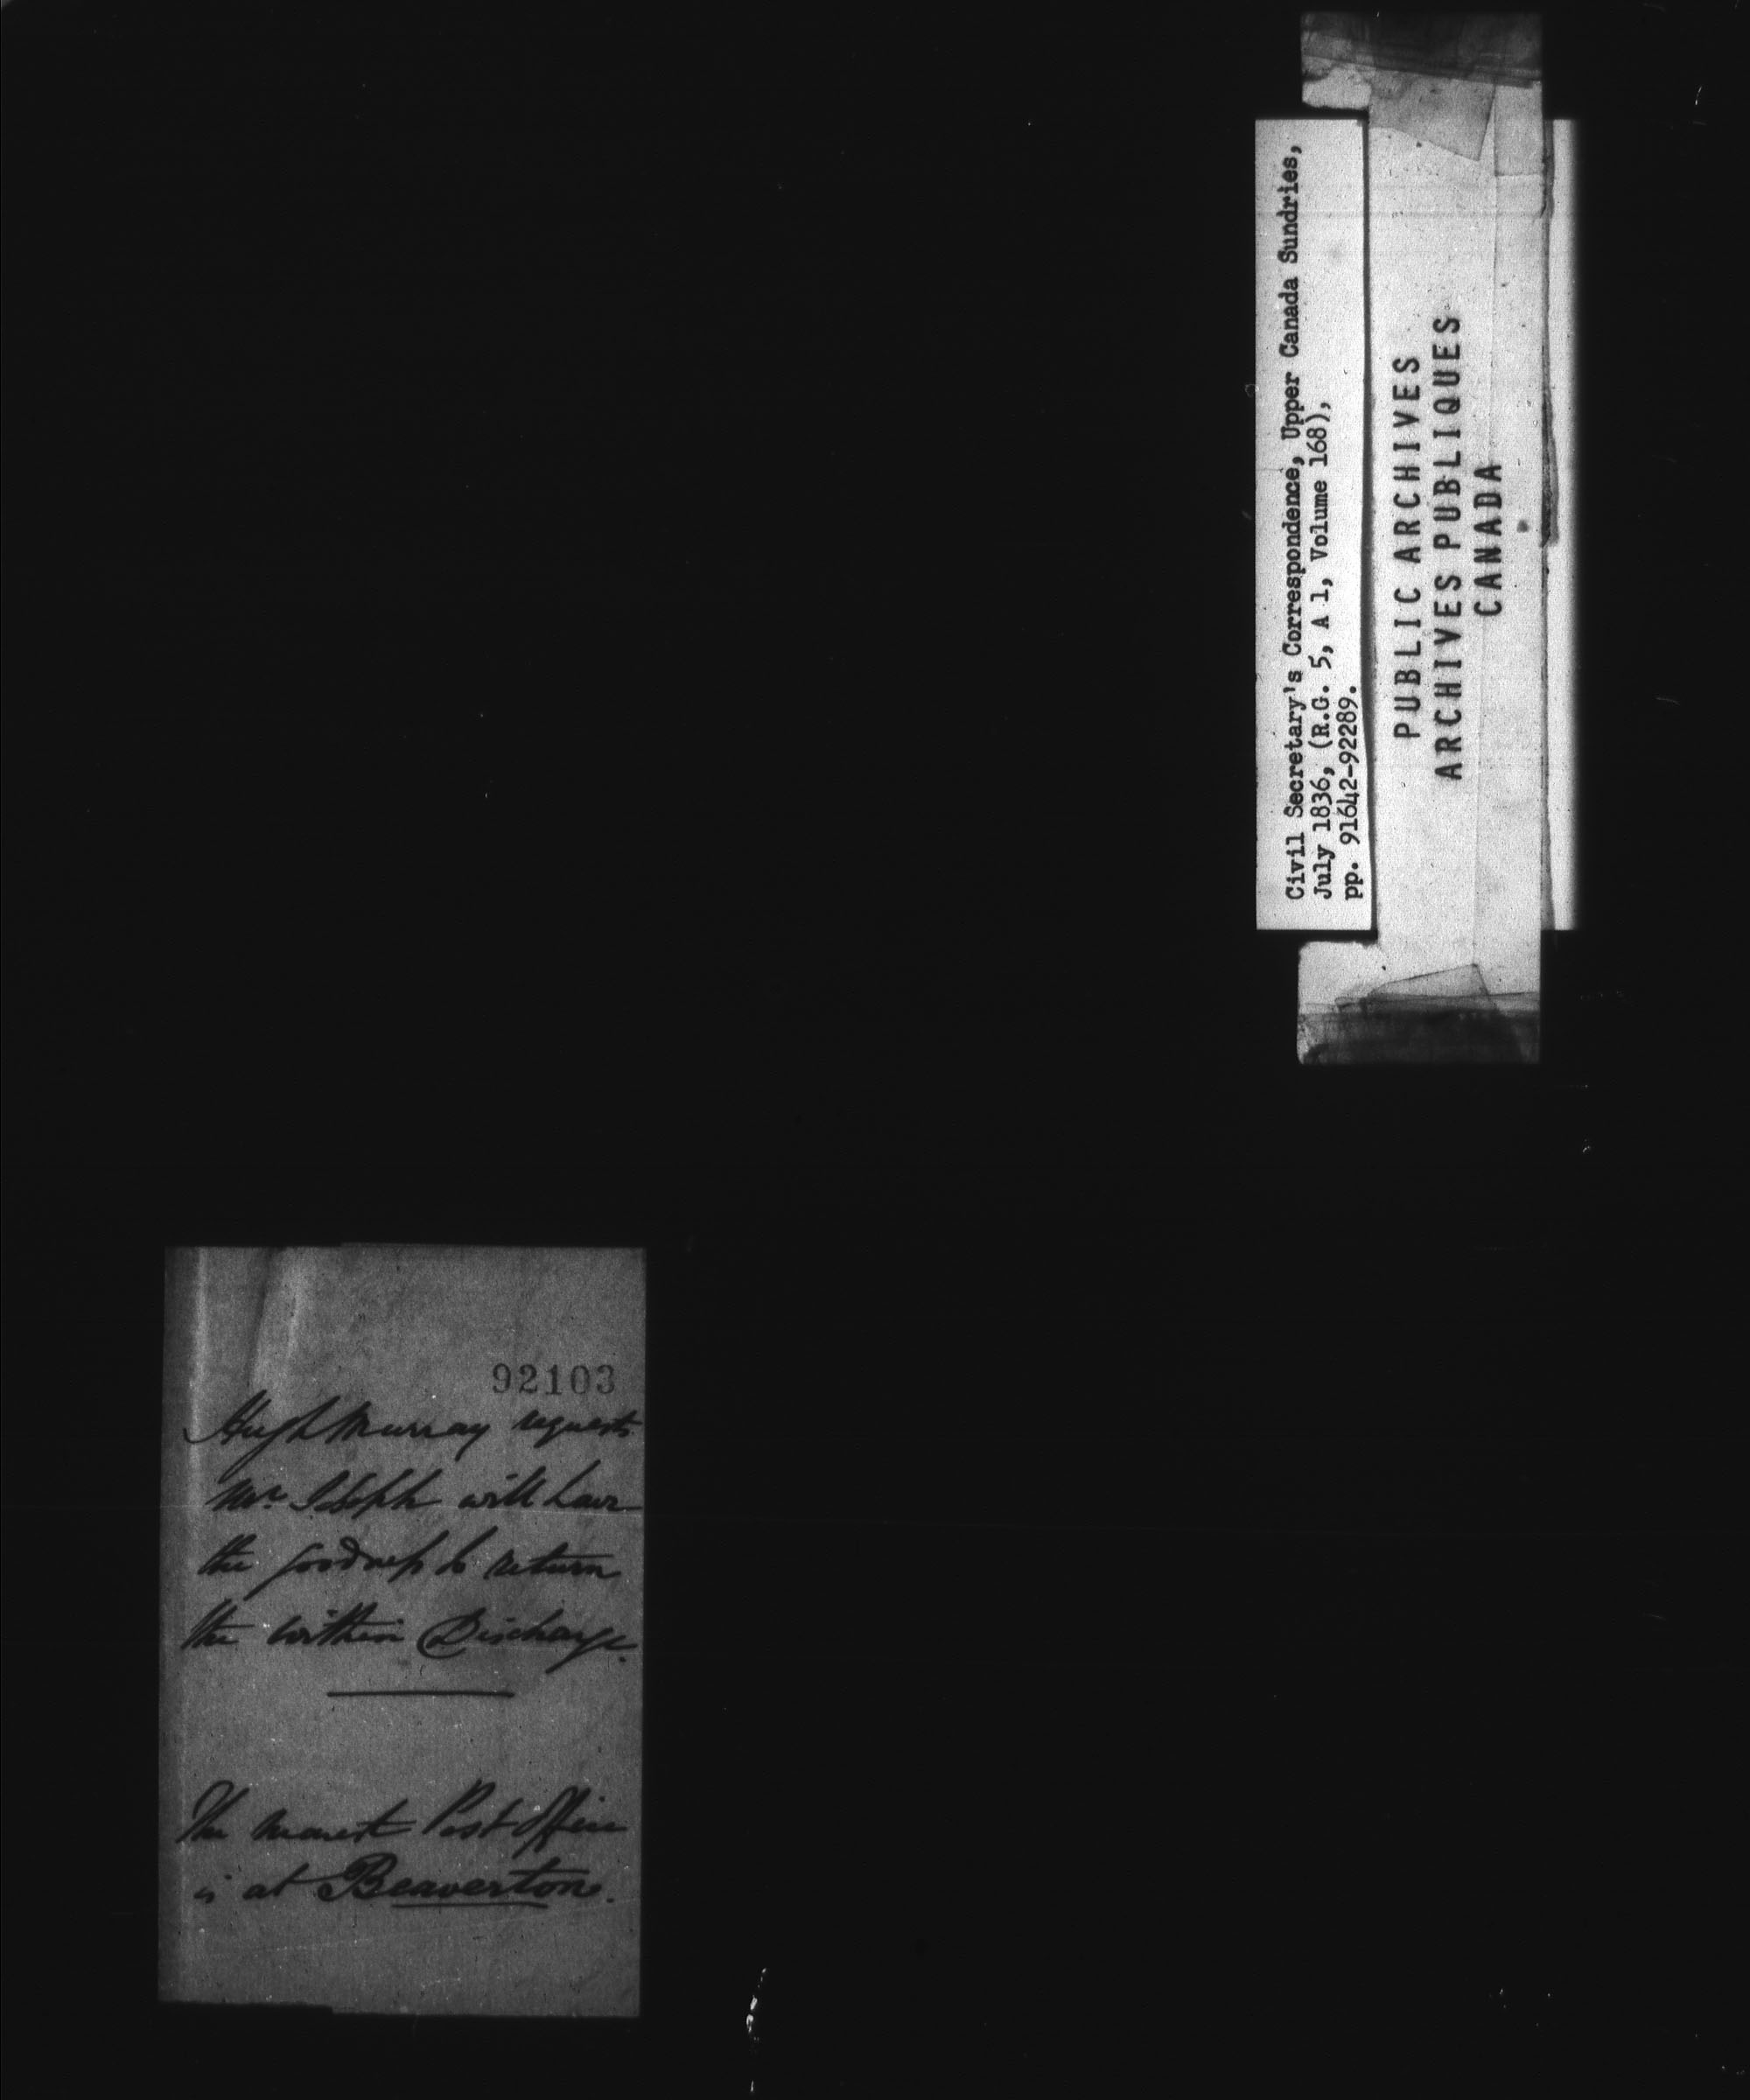 Civil Secretary's Correspondence, Upper Canada Sundries,
July 1836, (R.G. 5, A 1, Volume 168),
pp. 91642-92289.
PUBLIC ARCHIVES
ARCHIVES PUBLIQUES
CANADA
92103
Hugh Murray requests
Mr. Joseph will have
the goodness to return
the within Discharge.
The nearest Post Office
is at Beaverton.